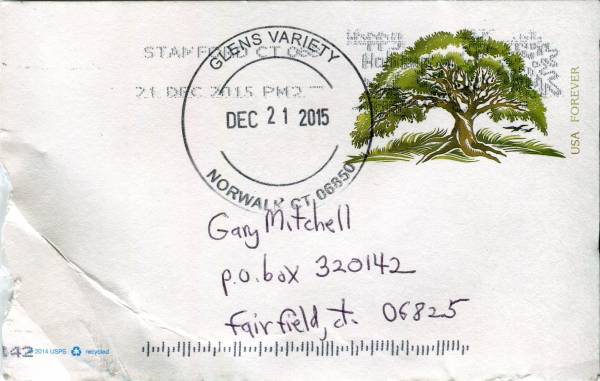 STAMFORD CT 068
Happy
21 DEC 2015 PM 2
GLENS VARIETY
DEC 21 2015
NORWALK CT 06850
USA FOREVER
Gary Mitchell
p.o.box 320142
fairfield, ct. 06825
142 2014 USPS recycled